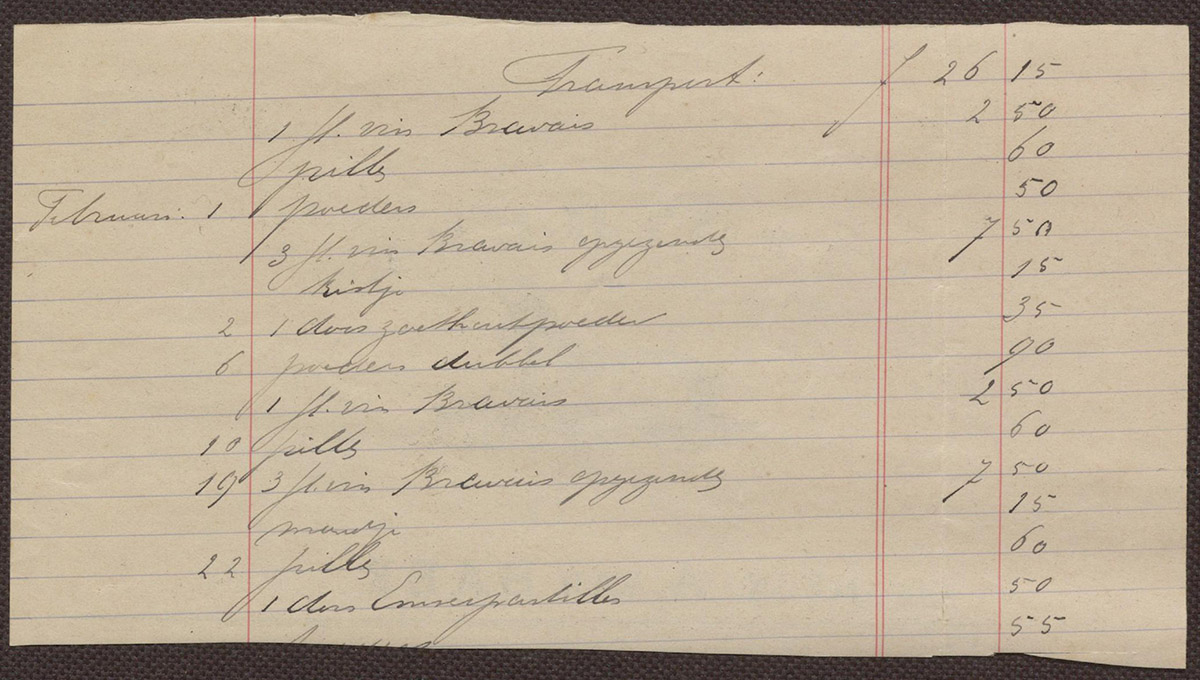 Transport: f 26 15
1 fl. vin Bravais 2 50
pills 60
Februari. 1 poeders 50
3 fl. vin Bravais opgezonden 7 50
kistje 15
2 1 doos zoethoutpoeder 35
6 poeders dubbel 90
1 fl. vin Bravais 2 50
10 pills 60
19 3 fl. vin Bravais opgezonden 7 50
mandje 15
22 pills 60
1 doos Emserpastilles 50
55